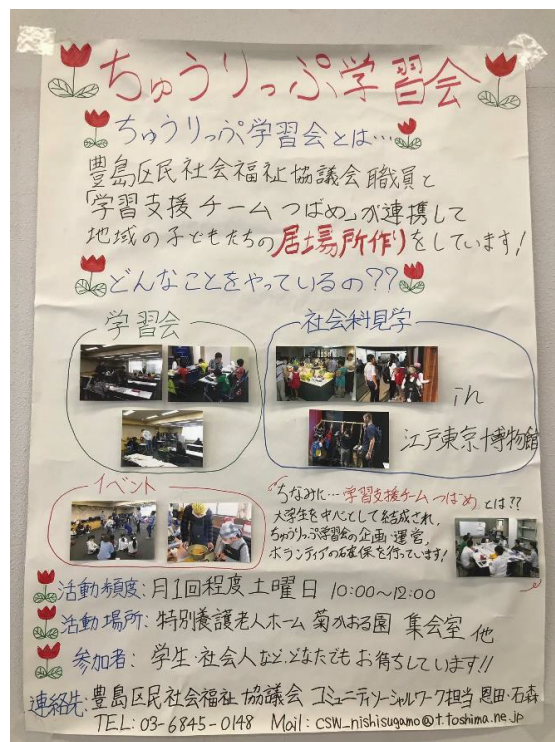 ちゅうりっぷ学習会
ちゅうりっぷ学習会とは…
豊島区民社会福祉協議会職員と
「学習支援チームつばめ」が連携して
地域の子どもたちの居場所作りをしています!
どんなことをやっているの??
学習会
社会科見学
in
江戸東京博物館
イベント
ちなみに…学習支援チームつばめ とは??
大学生を中心として結成され、
ちゅうりっぷ学習会の企画・運営、
ボランティアの確保を行っています!
活動頻度:月1回程度土曜日 10:00〜12:00
活動場所:特別養護老人ホーム 菊かおる園 集会室 他
参加者:学生・社会人など、どなたでもお待ちしています!!
連絡先:豊島区民社会福祉協議会 コミュニティソーシャルワーク担当 恩田・石森
TEL:03-6845-0148 Mail:csw_nishisugamo@t.toshima.ne.jp